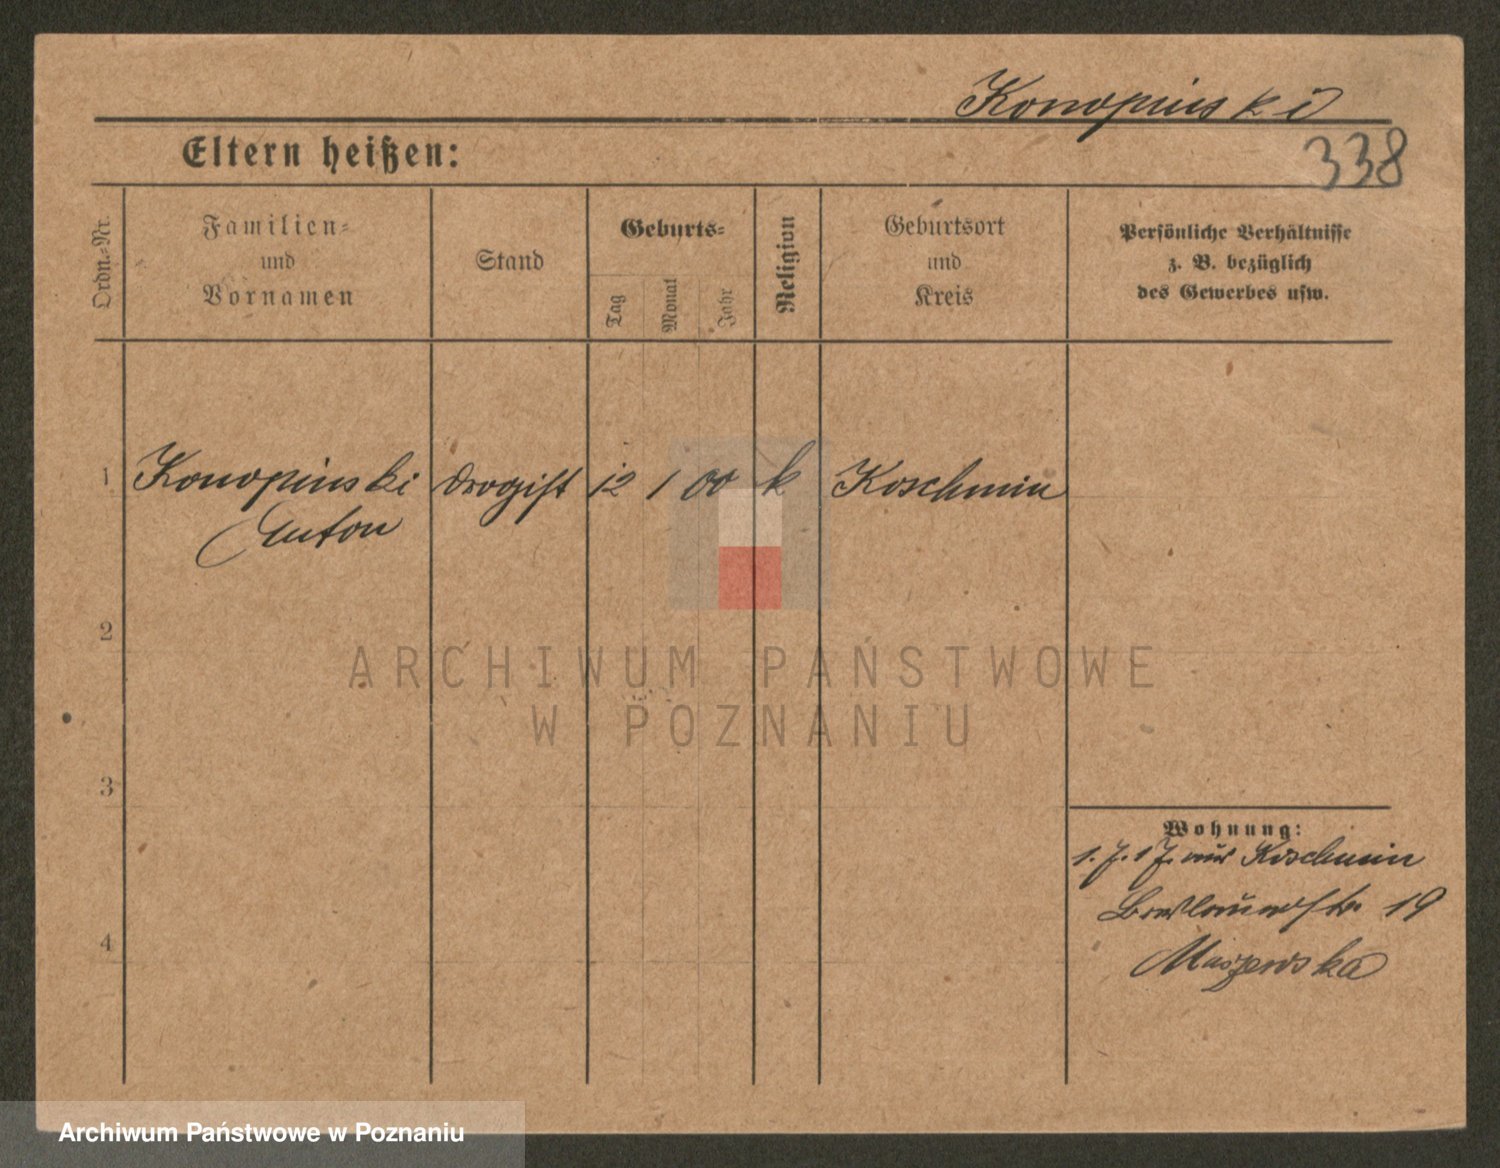 Konopinski
338
Eltern heißen:
Ordn.-Nr.
Familien-
und
Vornamen
Stand
Geburts-
Tag
Monat
Jahr
Religion
Geburtsort
und
Kreis
Persönliche Verhältnisse
z. B. bezüglich
des Gewerbes usw.
1 Konopinski Drogist 12 1 00 k Koschmin
Anton
2
ARCHIWUM PAŃSTWOWE
W POZNANIU
3
Wohnung:
1. 7. 17. aus Koschmin
4
Breslauerstr. 19
Maszewska
Archiwum Państwowe w Poznaniu